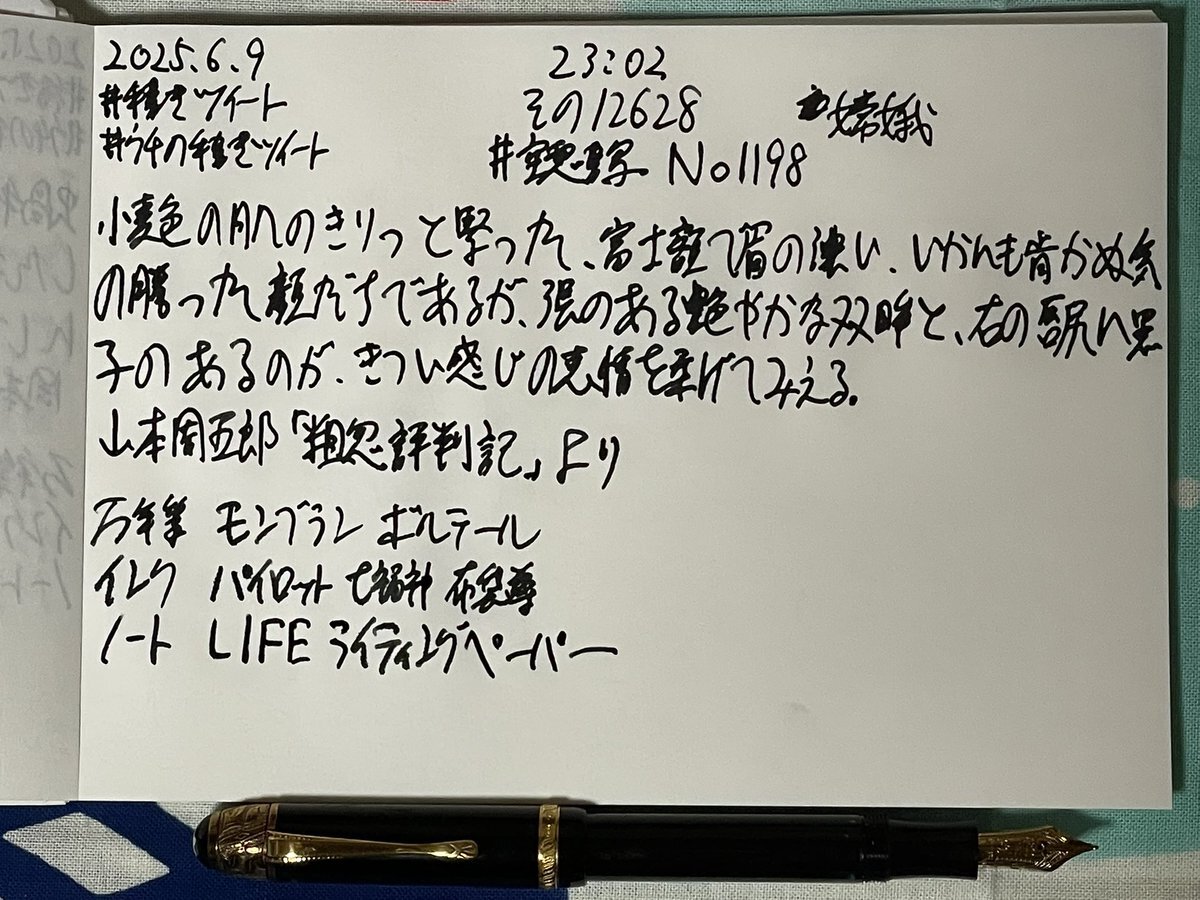 2025.6.9 23:02
#手書きツイート その12628 嫦娥
#ウチの手書きツイート # No1198
小麦色の肌のきりっと緊った、富士額で眉の濃い、いかにも肯かぬ気
の勝った顔だちであるが、張のある艶やかな双眸と、右の唇尻に黒
子のあるのが、きつい感じの表情を柔げてみえる。
山本周五郎「粗忽評判記」より
万年筆 モンブラン ボルテール
インク パイロット 七福神 布袋尊
ノート LIFE ライティングペーパー